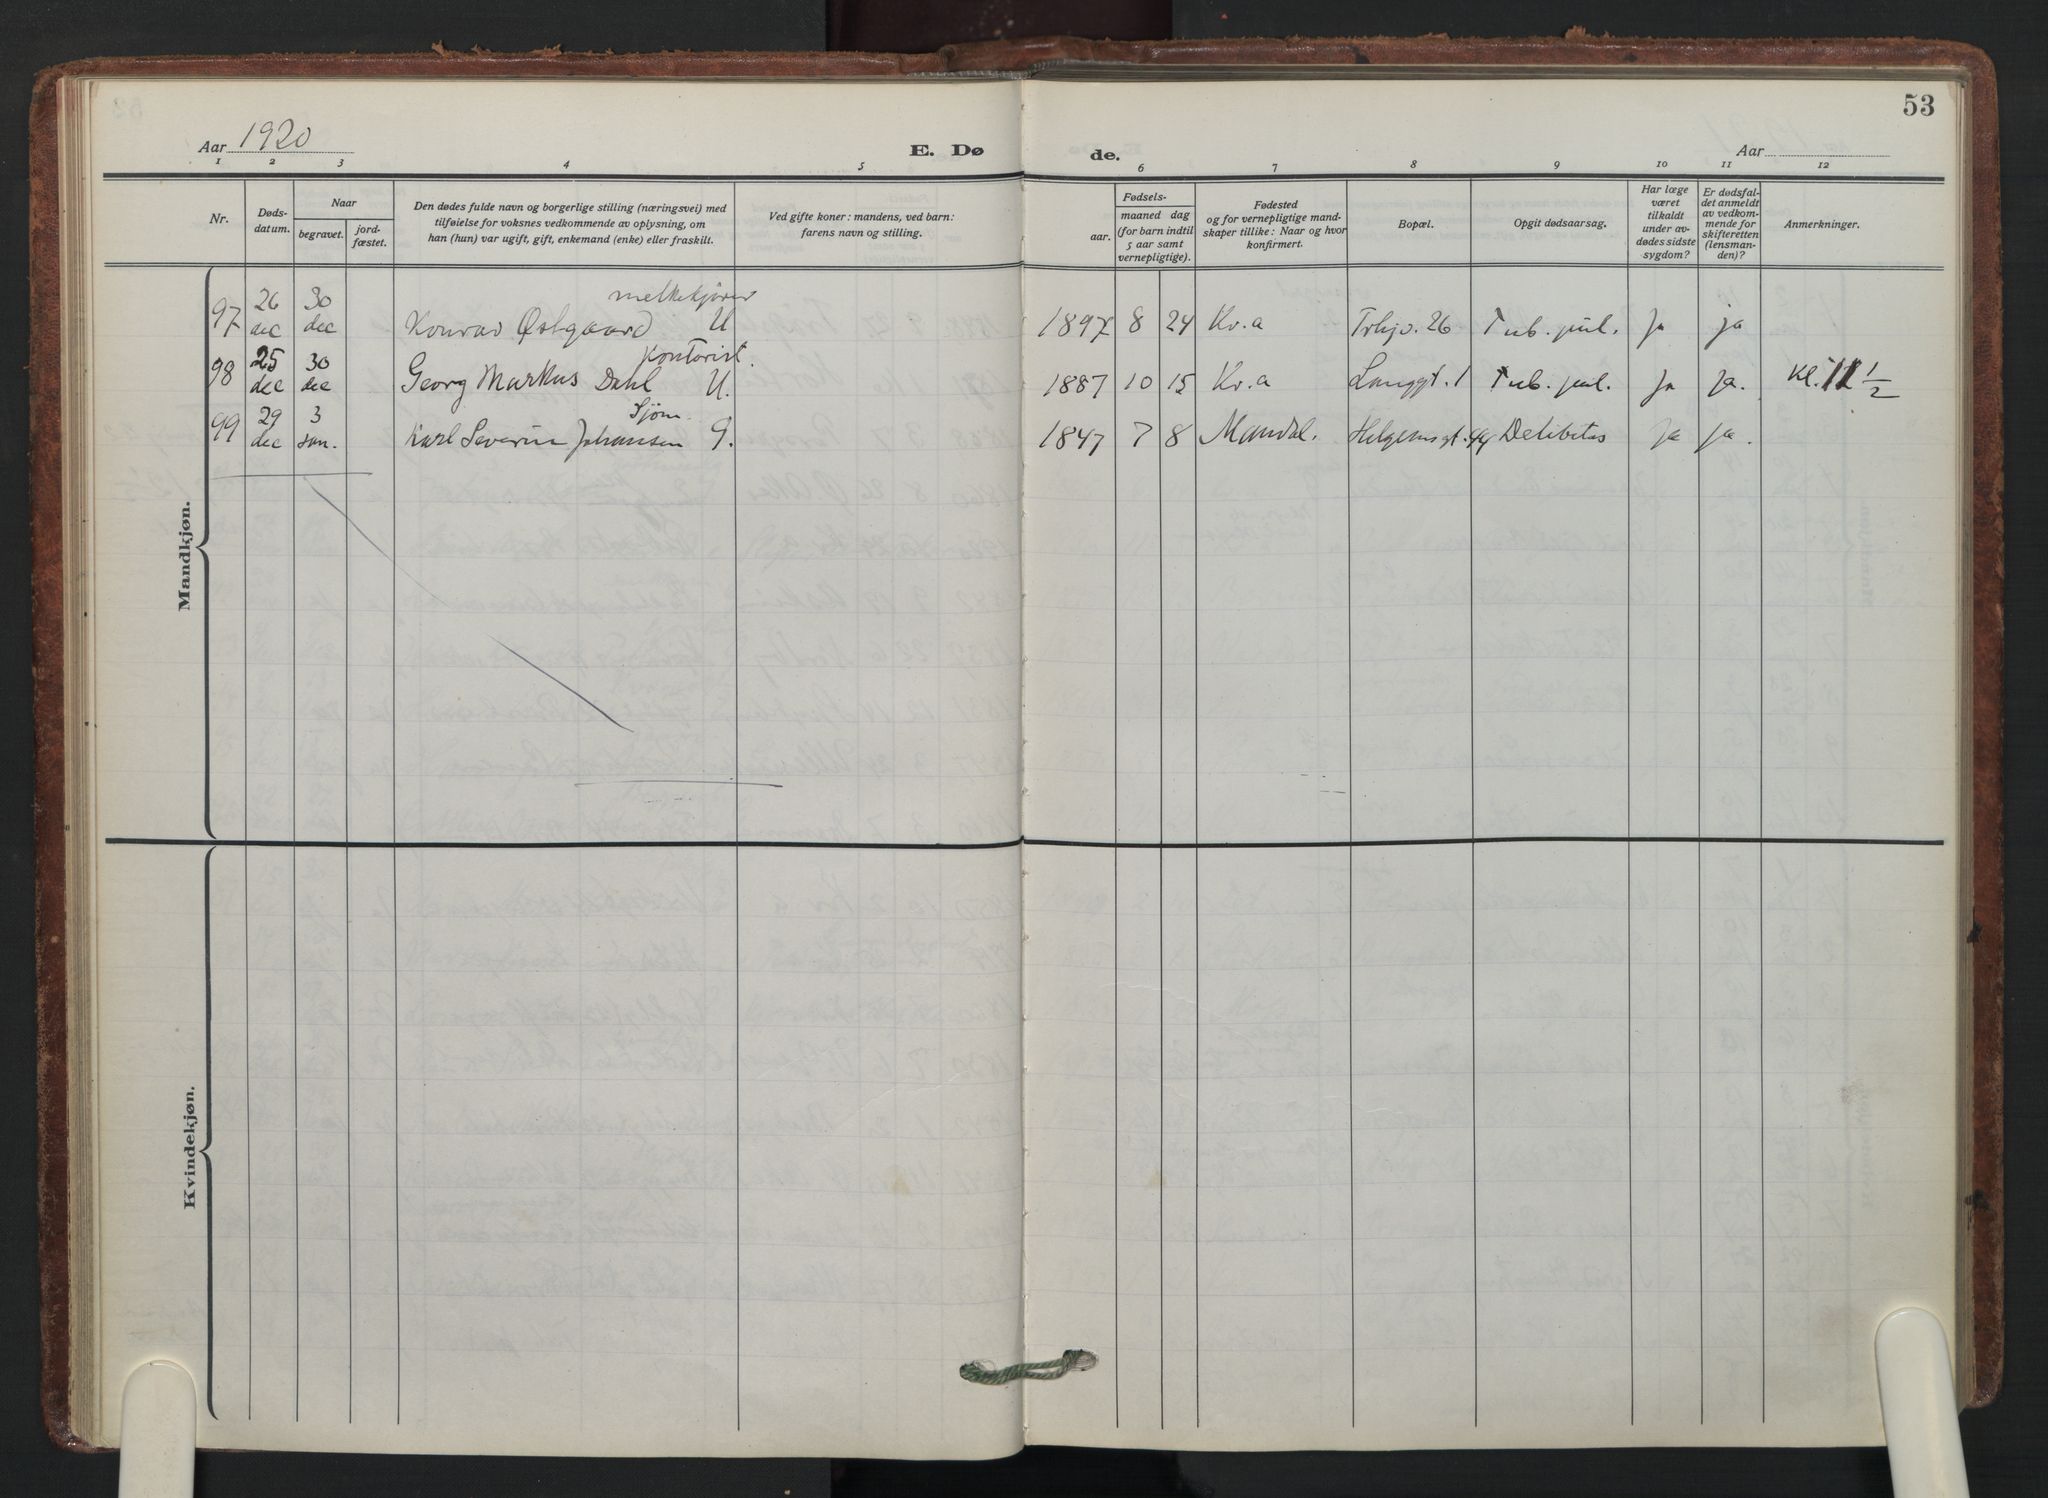 53
Aar 1920
E. Dø
de.
Aar
1 2 3 4 5 6 7 8 9 10 11 12
Nr.
Døds-
datum.
Naar
begravet.
jord-
fæstet.
Den dødes fulde navn og borgerlige stilling (næringsvei) med
tilføielse for voksnes vedkommende av oplysning, om
han (hun) var ugift, gift, enkemand (enke) eller fraskilt.
Ved gifte koner: mandens, ved barn:
farens navn og stilling.
Fødsels-
aar.
maaned dag
(for barn indtil
5 aar samt
vernepligtige).
Fødested
og for vernepligtige mand-
skaper tillike: Naar og hvor
konfirmert.
Bopæl.
Opgit dødsaarsag.
Har læge
været
tilkaldt
under av-
dødes sidste
sygdom?
Er dødsfal-
det anmeldt
av vedkom-
mende for
skifteretten
(lensman-
den)?
Anmerkninger.
Mandkjøn.
26 30 melkekjører
97 dec dec Konrad Østgaard U 1897 8 24 Kr.a Trhjv. 26 Tub. pul. Ja ja
25 30 Kontorist.
98 dec dec Georg Markus Dahl U. 1887 10 15 Kr.a Langgt. 1 Tub. pul. Ja ja. Kl. 11 1/2
29 3 Sjøm.
99 dec Karl Severin Johansen G. 1847 7 8 Mandal. Helgensgt. 44 Ja ja.
Kvindekjøn.